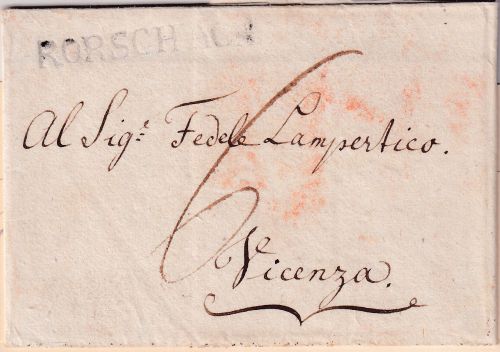 RORSCHACH
Al Sig.r Fedele Lampertico.
6
Vicenza.